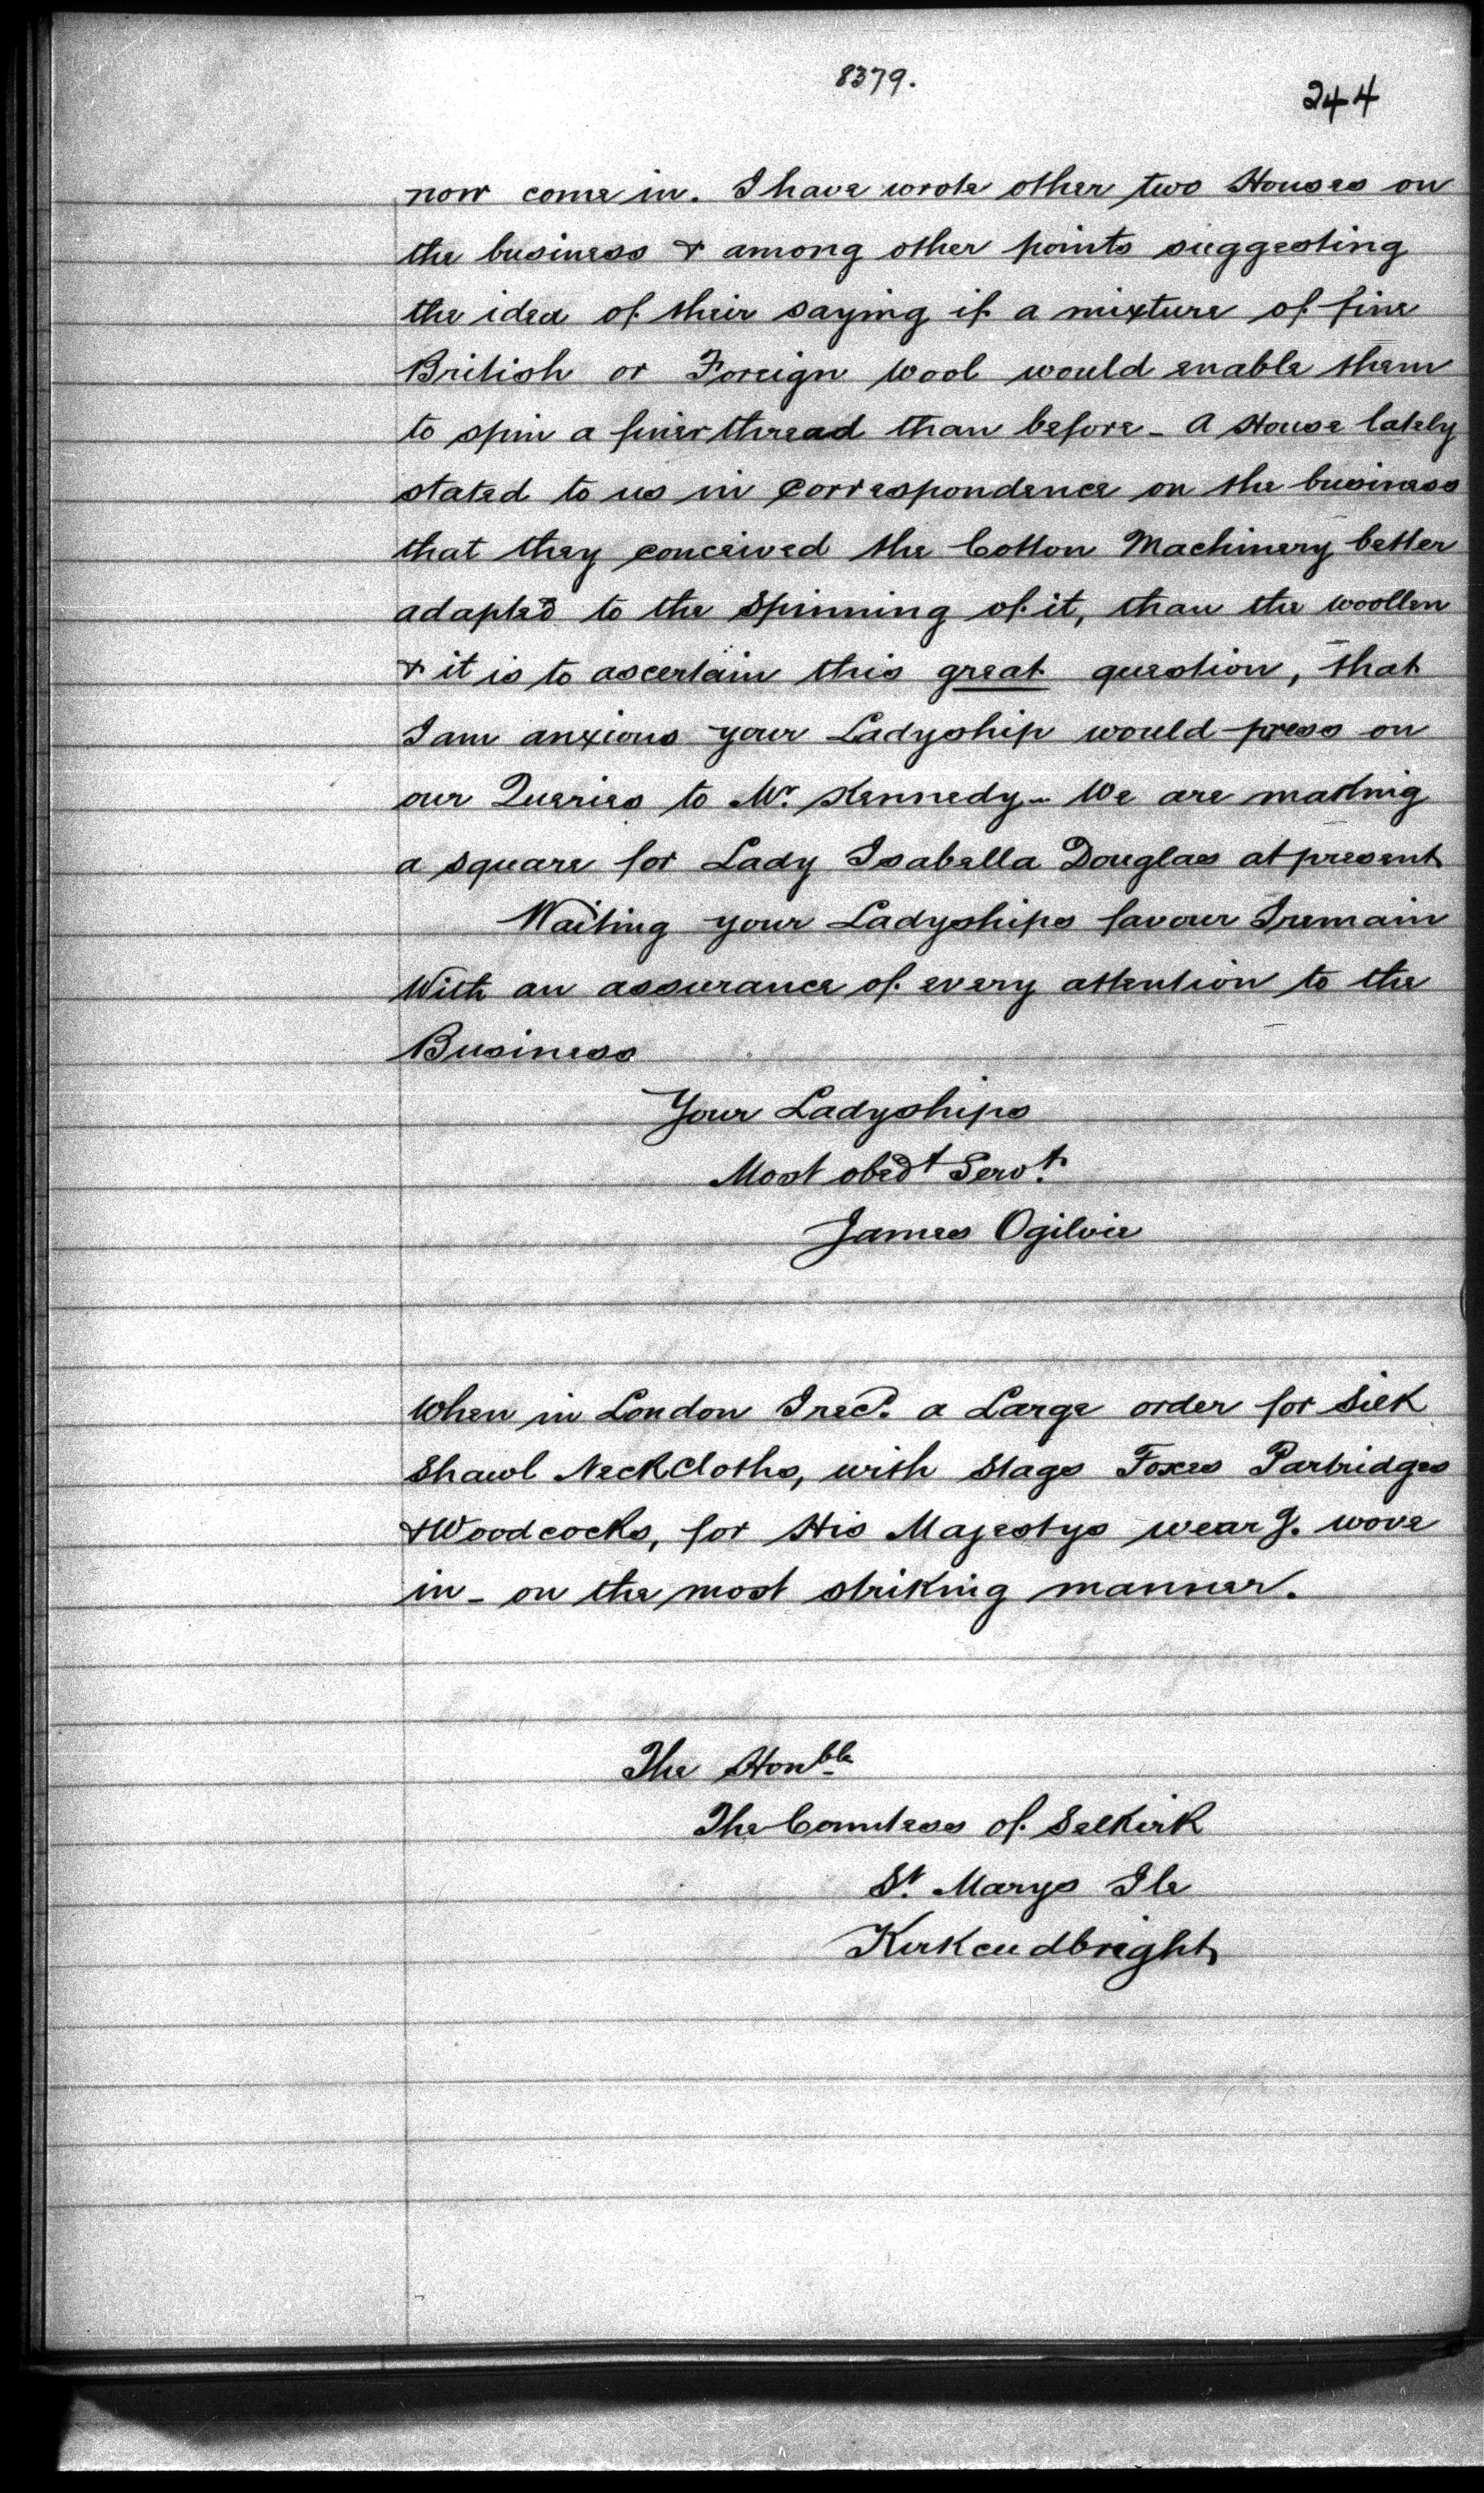 8379.
244
now come in. I have wrote other two Houses on
the business & among other points suggesting
the idea of their saying if a mixture of fine
British or Foreign wool would enable them
to spin a finer thread than before - A House lately
stated to us in Correspondence on the business
that they conceived the Cotton Machinery better
adapted to the Spinning of it, than the woollen
& it is to ascertain this great question, that
I am anxious your Ladyship would press on
our Queries to Mr. Kennedy - We are making
a square for Lady Isabella Douglas at present
Waiting your Ladyships favour I remain
With an assurance of every attention to the
Business
Your Ladyships
Most obedt Servt.
James Ogilvie
When in London I recd. a Large order for Silk
Shawl NeckCloths, with Stags Foxes Partridges
& Woodcocks, for His Majestys wearg. wove
in - on the most striking manner.
The Honble
The Countess of Selkirk
St. Marys Ile
Kirkcudbright